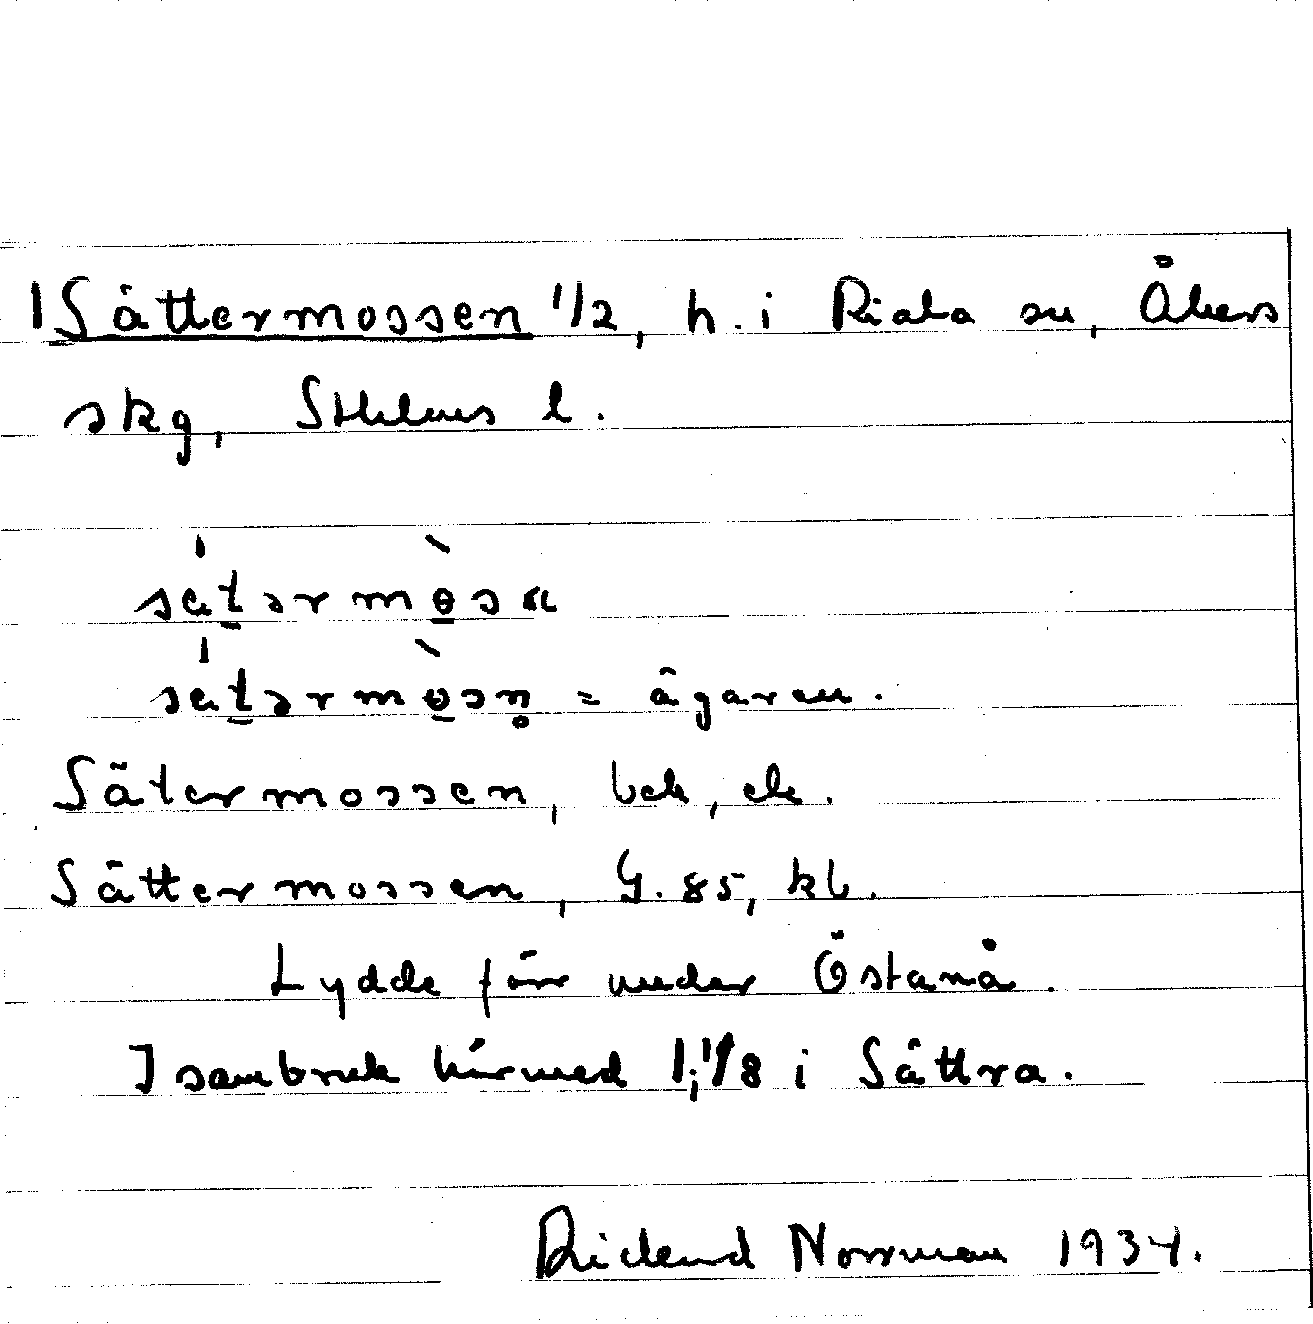 1 Sättermossen 1/2, h. i Riala sn, Åkers
skg, Sthlms l.
sätərmòsa
sätərmòsn̥ = ägaren.
Sätermossen, bck, ek.
Sättermossen, G. 85, kb.
Lydde förr under Östanå.
I sambruk härmed 1, 1/8 i Sättra.
Rickard Norrman 1934.